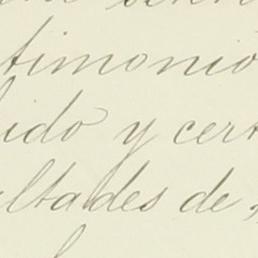 timonio
ido y cert
ultades de